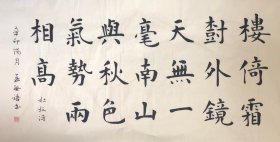 樓倚霜
樹外鏡
天無一
毫南山
與秋色
氣勢兩
相髙
杜牧詩
辛卯陽月